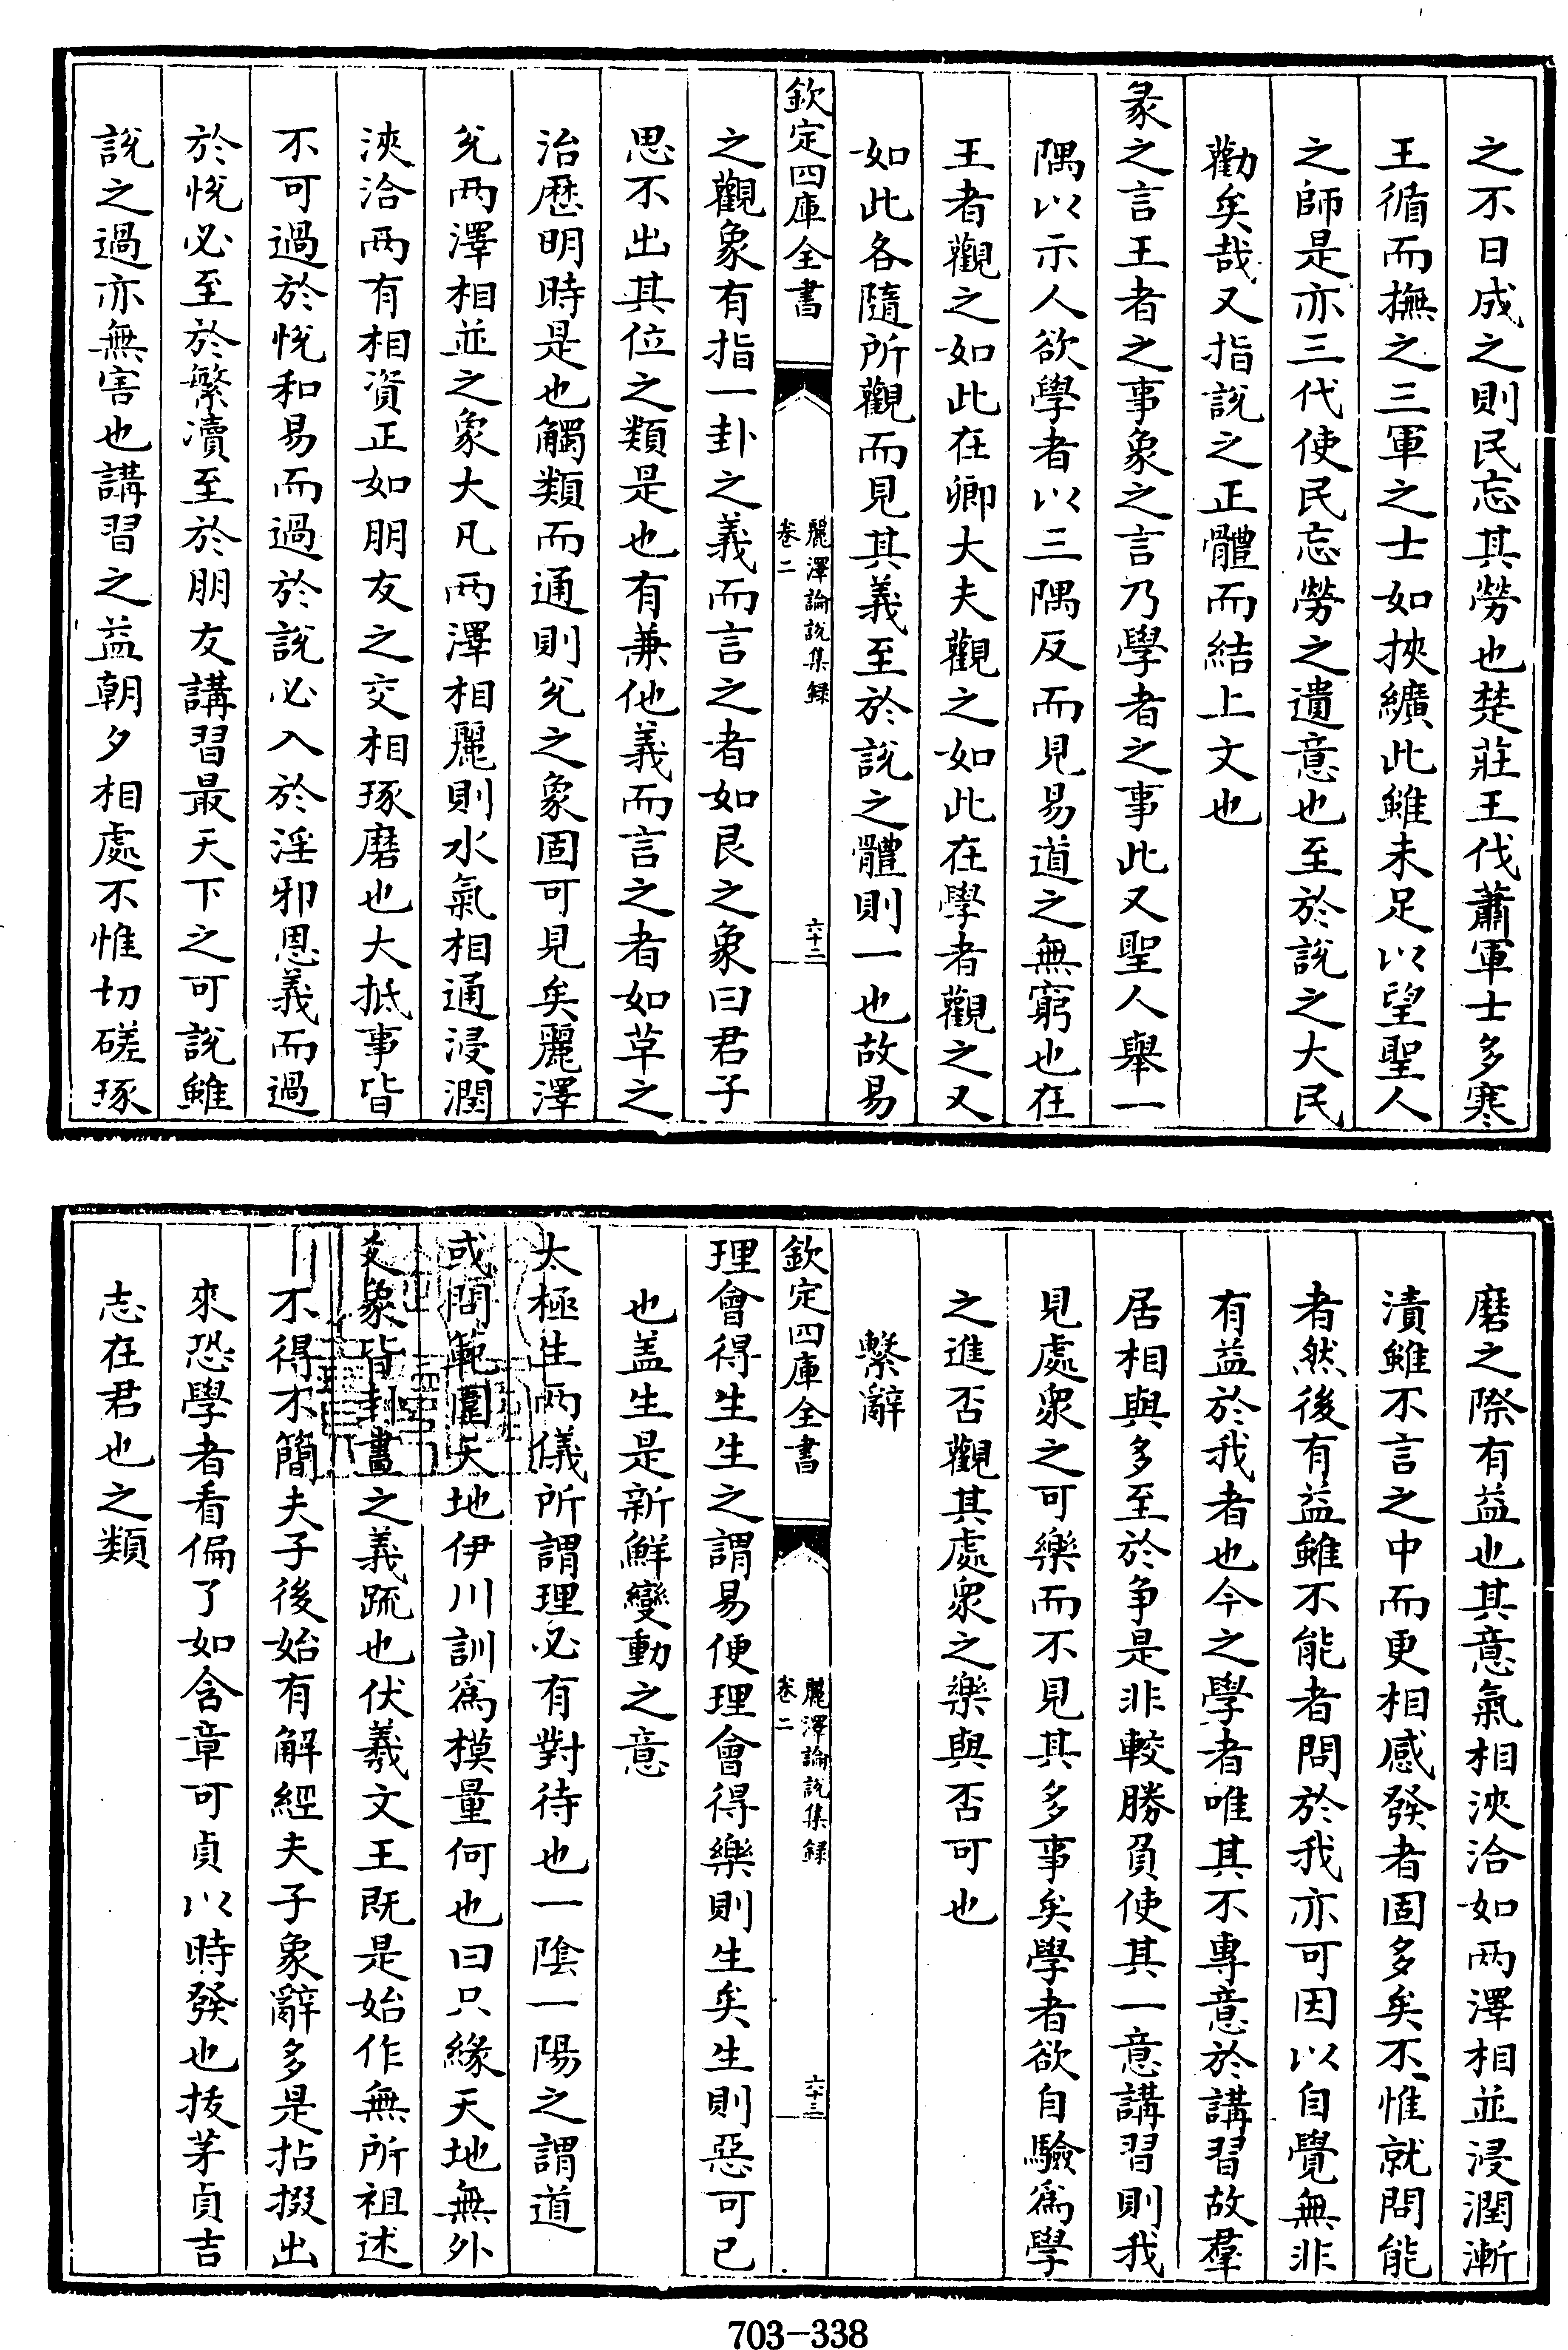 之不日成之則民忘其勞也楚莊王伐蕭軍士多寒
王循而撫之三軍之士如挾纊此雖未足以望聖人
之師是亦三代使民忘勞之遺意也至於說之大民
勸矣哉又指說之正體而結上文也
彖之言王者之事象之言乃學者之事此又聖人舉一
隅以示人欲學者以三隅反而見易道之無窮也在
王者觀之如此在卿大夫觀之如此在學者觀之又
如此各隨所觀而見其義至於說之體則一也故易
欽定四庫全書
麗澤論說集録
卷二
六十二
之觀象有指一卦之義而言之者如艮之象曰君子
思不出其位之類是也有兼他義而言之者如草之
治歷明時是也觸類而通則兊之象固可見矣麗澤
兊兩澤相並之象大凡兩澤相麗則水氣相通浸潤
浹洽兩有相資正如朋友之交相琢磨也大抵事皆
不可過於悅和易而過於說必入於淫邪恩義而過
於悅必至於繁瀆至於朋友講習最天下之可說雖
說之過亦無害也講習之益朝夕相處不惟切磋琢
磨之際有益也其意氣相浹洽如兩澤相並浸潤漸
漬雖不言之中而更相感發者固多矣不惟就問能
者然後有益雖不能者問於我亦可因以自覺無非
有益於我者也今之學者唯其不專意於講習故羣
居相與多至於争是非較勝負使其一意講習則我
見處衆之可樂而不見其多事矣學者欲自驗為學
之進否觀其處衆之樂與否可也
繫辭
欽定四庫全書
麗澤論說集録
卷二
六十三
理會得生生之謂易便理會得樂則生矣生則惡可已
也盖生是新鮮變動之意
太極生兩儀所謂理必有對待也一陰一陽之謂道
或問範圍天地伊川訓為模量何也曰只緣天地無外
爻象皆卦畫之義疏也伏羲文王既是始作無所祖述
不得不簡夫子後始有解經夫子象辭多是拈掇出
來恐學者看偏了如含章可貞以時發也拔茅貞吉
志在君也之類
703-338